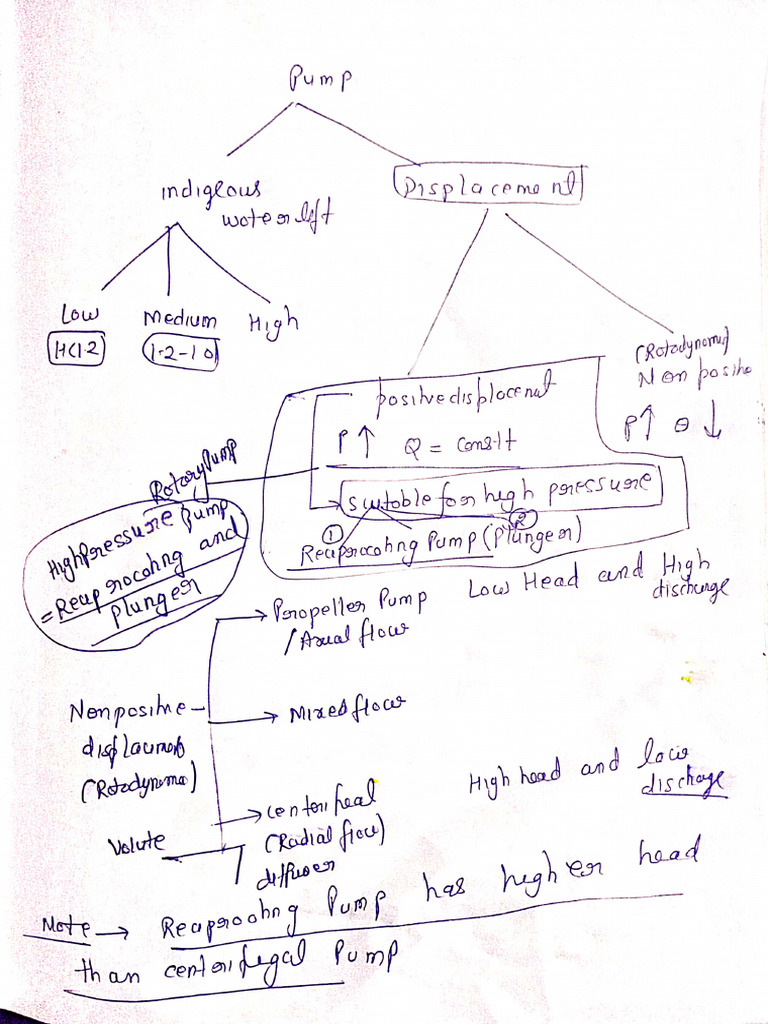 Pump
indigeous
water lift
Displacement
Low
Medium
High
H<1.2
1.2-10
(Rotadynamic)
Non positive
P↑ Q ↓
positive displacement
P ↑ Q = Const
Suitable for high pressure
① ②
Reaprocating Pump (Plunger)
Rotary Pump
High Pressure Pump
= Reaprocating and
plunger
Low Head and High
discharge
→ Propeller Pump
/ Axial flow
Non positive
displacement
(Rotadynamic)
→ Mixed flow
High head and low
discharge
→ Centerifugal
(Radial flow)
Volute
diffuser
Note → Reaprocating Pump has higher head
than centerifugal Pump